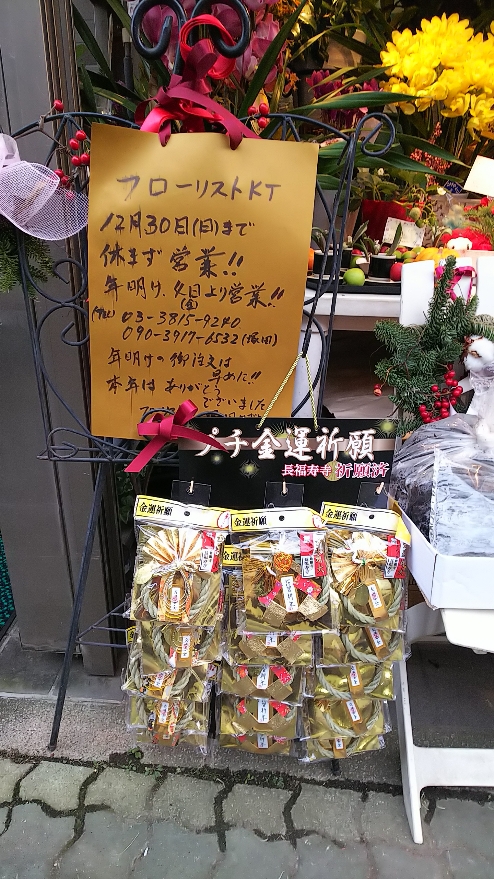 フローリストKT
12月30日(日)まで
休まず営業!!
年明け、4日より営業!!
(金)
03-3815-9240
090-3917-6532
年明けの御注文は
早めに!!
本年はありがとう
ございました
プチ金運祈願
長福寿寺 祈願済
金運祈願
金運祈願
金運祈願
金運